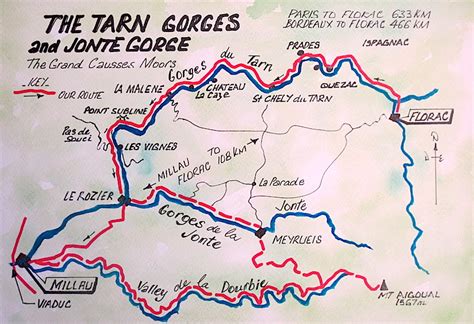 THE TARN GORGES
and JONTE GORGE
The Grand Causses Moors
PARIS TO FLORAC 633 KM
BORDEAUX TO FLORAC 466 KM
KEY
OUR ROUTE
LA MALENE
Gorges du Tarn
PRADES
ISPAGNAC
POINT SUBLIME
CHATEAU
La Caze
QUEZAC
ST CHELY du TARN
FLORAC
Pas de
Souci
LES VIGNES
MILLAU TO
FLORAC 108 KM
N
LE ROZIER
La Parade
Jonte
Gorges de la
Jonte
MEYRUEIS
MILLAU
VIADUC
Valley de la Dourbie
MT AIGOUAL
1567 m